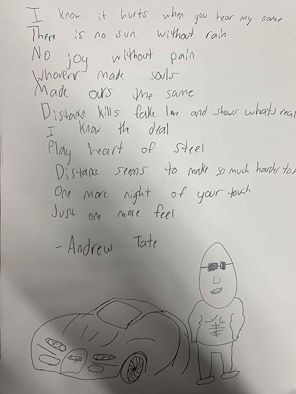 I know it hurts when you hear my name
There is no sun without rain
No joy without pain
Whoever made souls
Made ours the same
Distance kills fake love and shows whats real
I know the deal
Play heart of steel
Distance seems to make so much harder to
One more night of your touch
Just one more feel
- Andrew Tate